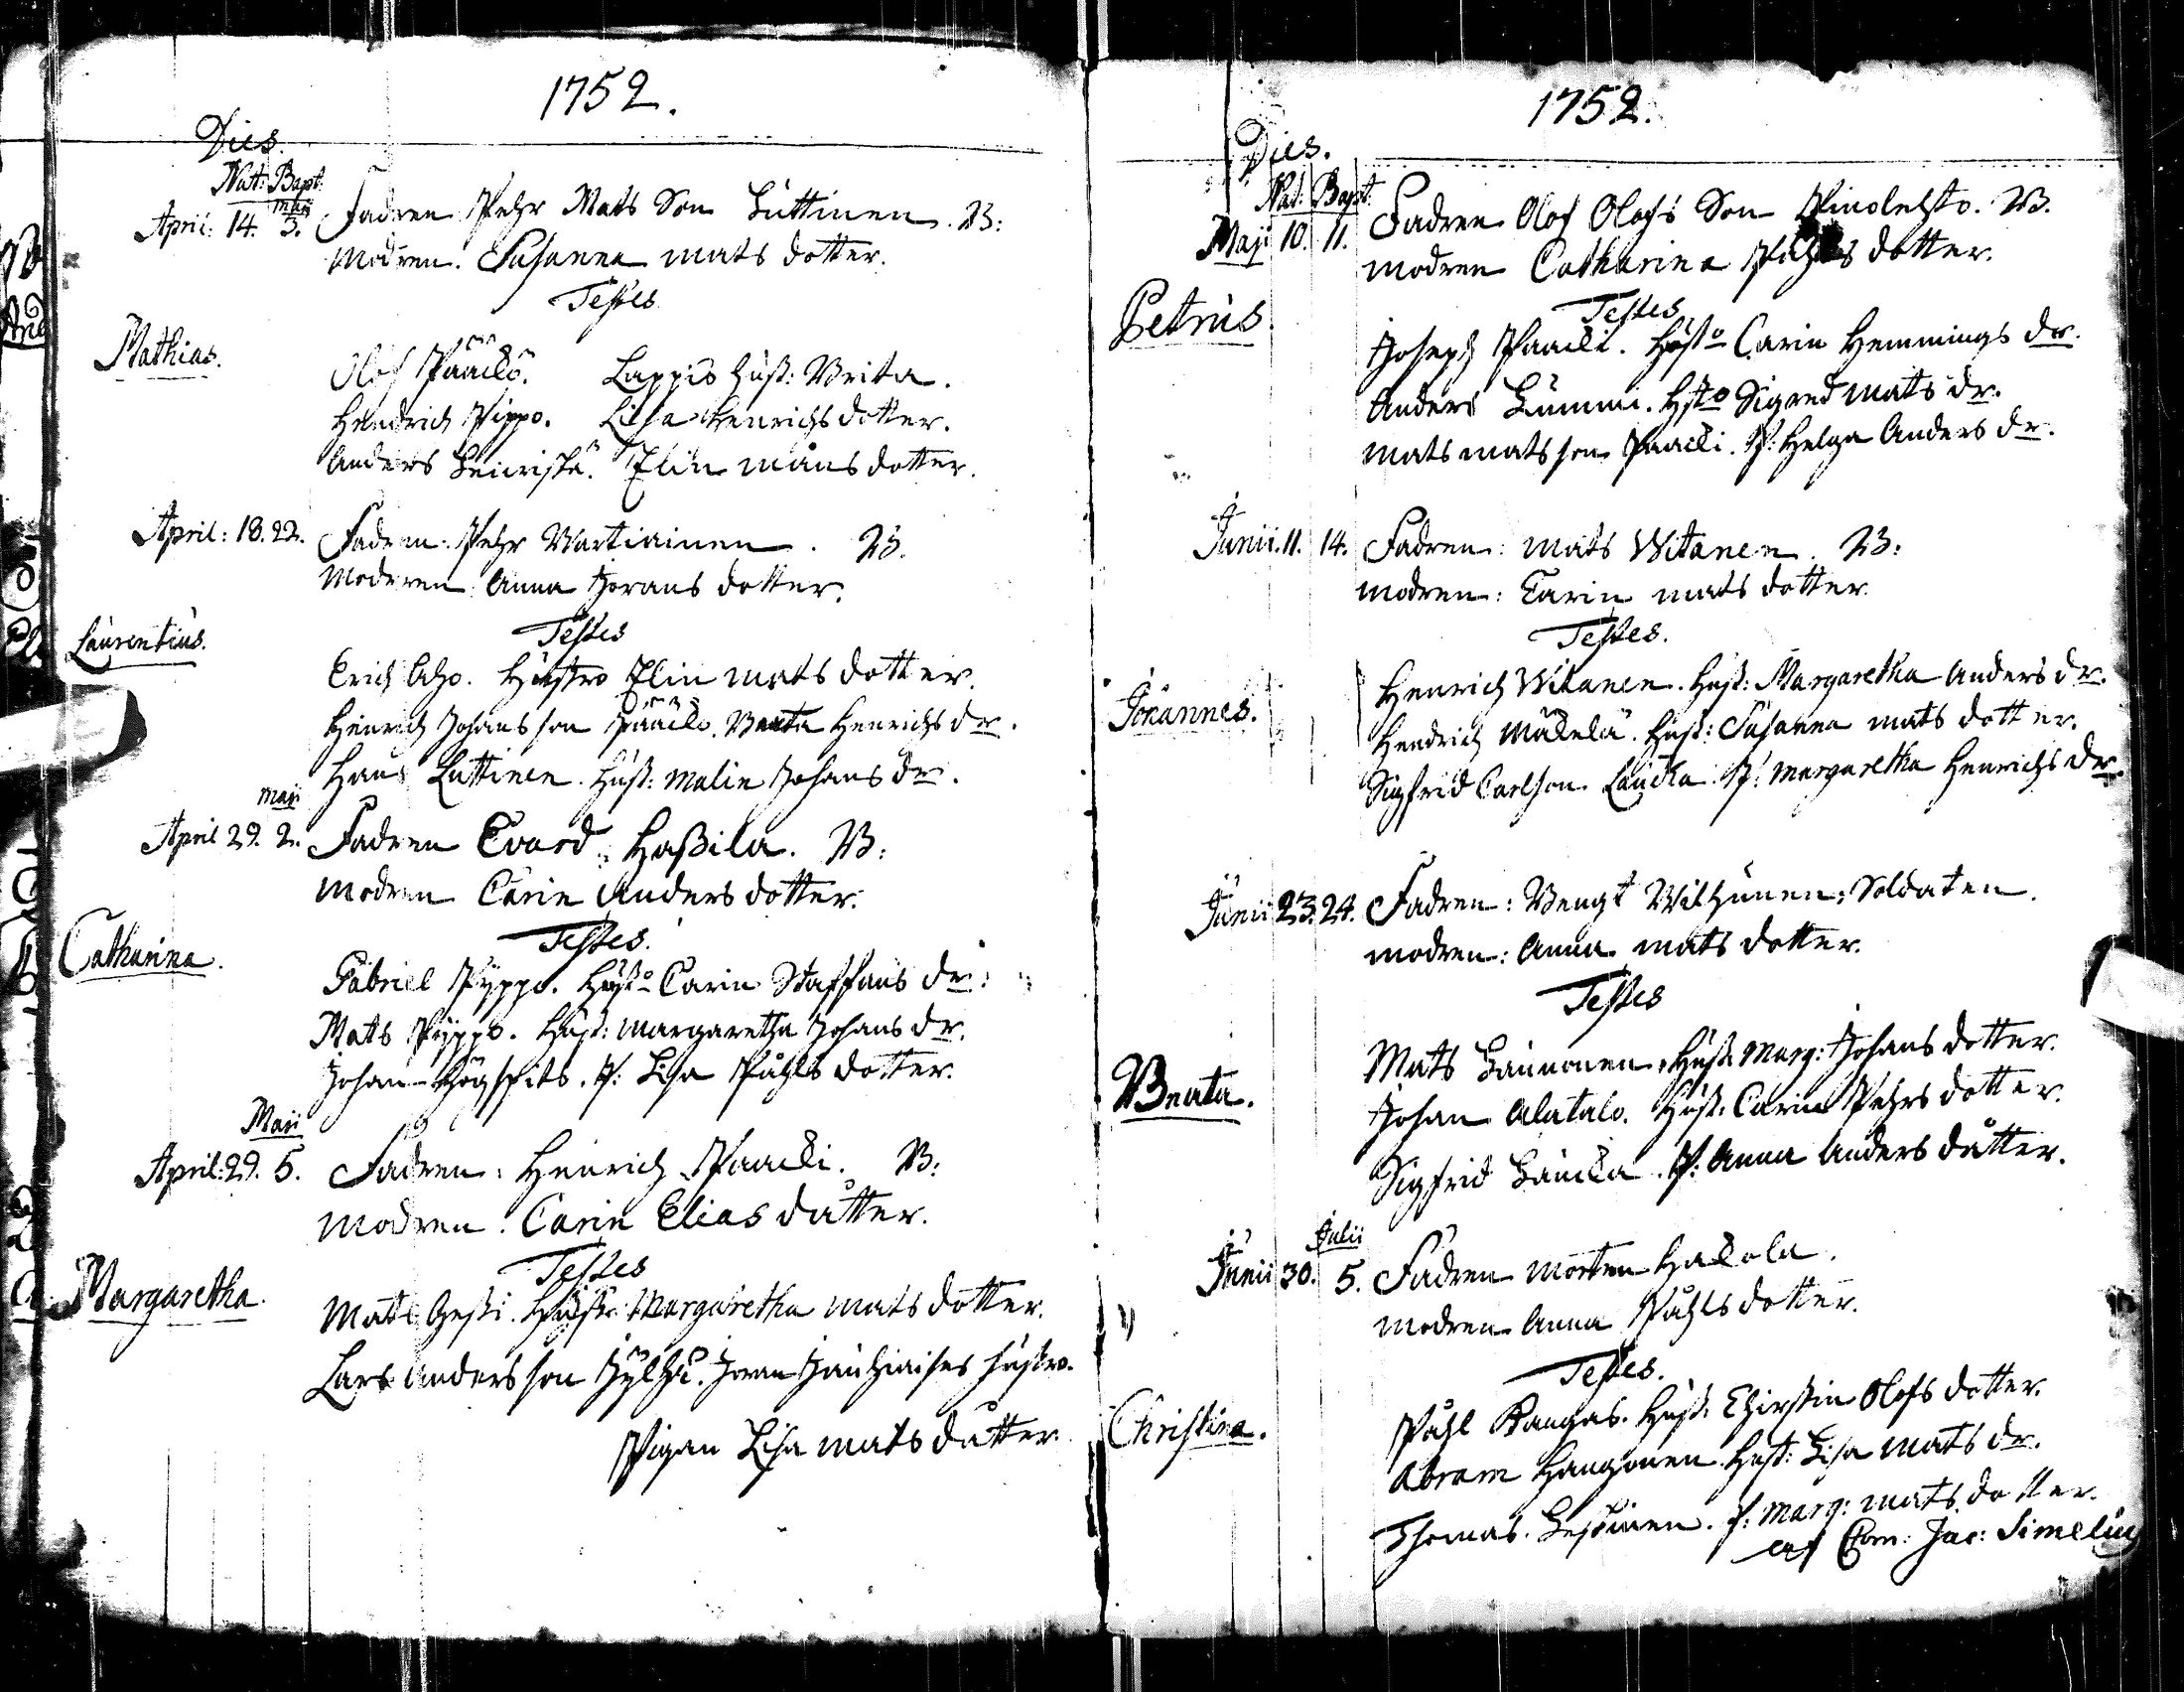 1752.
Dies.
Nat: Bapt.
Maji
April: 14. 3. Fadren Pehr Mats Son Luttinen. B:
Modren. Susanna mats dotter.
Testes
Mathias.
Olof Pääckö. Lappis Hust: Brita.
Hendrich Pippo. Lisa Henrichs dotter.
Anders Elin måns dotter.
April: 18. 22. Fadren: Pehr Martiainen. B.
Modren Anna Jörans dotter.
Testes
Laurentius.
Erich Aho. Hustro Elin mats dotter.
Henrich Johans son Pääckö. Henrichs dr.
Hans Luttinen. Hust: Malin Johans dr.
Maji
April 29. 2. Fadren Evard Haßila. B:
Modren Carin Anders dotter.
Testes.
Catharina.
Gabriel Pyppo. Husto Carin Staffans dr:
Mats Pyppo. Hust: Margaretha Johans dr.
Johan Högspits. P: Lisa Påhls dotter.
Maji
April: 29. 5. Fadren: Henrich Paacki. B:
Modren. Carin Elias dåtter.
Testes
Margaretha.
Mats Hustr: Margaretha mats dotter.
Lars Anders son Jylhä. Jöran Hustro.
Pigan Lisa mats dåtter
1752.
Dies.
Nat: Bapt.
Maji 10. 11. Fadren Olof Olofs Son B.
modren Catharina Påhls dotter.
Testes
Petrus.
Joseph Paacki. Husto Carin Hemmings dr.
Anders Lummi. Hsto Sigred mats dr.
Mats mats son Paacki. P: Helga Anders dr.
Junii. 11. 14. Fadren: Mats Witanen. B:
modren: Carin mats dotter.
Testes.
Johannes.
Henrich Witanen. Hust: Margaretha Anders dr.
Hendrich Mäkelä. Hust: Susanna mats dotter.
Sigfrid Carlson Laucka. P: Margaretha Henrichs dr.
Junii 23. 24. Fadren: Bengt Wilhunen, Soldaten.
modren: Anna mats dotter.
Testes
Beata.
Mats Launonen, Hust: Marg: Johans dotter.
Johan Alatalo. Hust: Carin Pehrs dotter.
Sigfrid Laucka. P: Anna Anders dåtter.
Julii
Junii 30. 5. Fadren Morten Hakola.
modren Anna Påhls dotter.
Testes.
Christina.
Påhl Kangas. Hust: Chirstin Olofs dotter.
Abram Hangonen. Hust: Lisa mats dr.
Thomas Leskinen. P: Marg: mats dotter.
af Com: Jac: Simelius